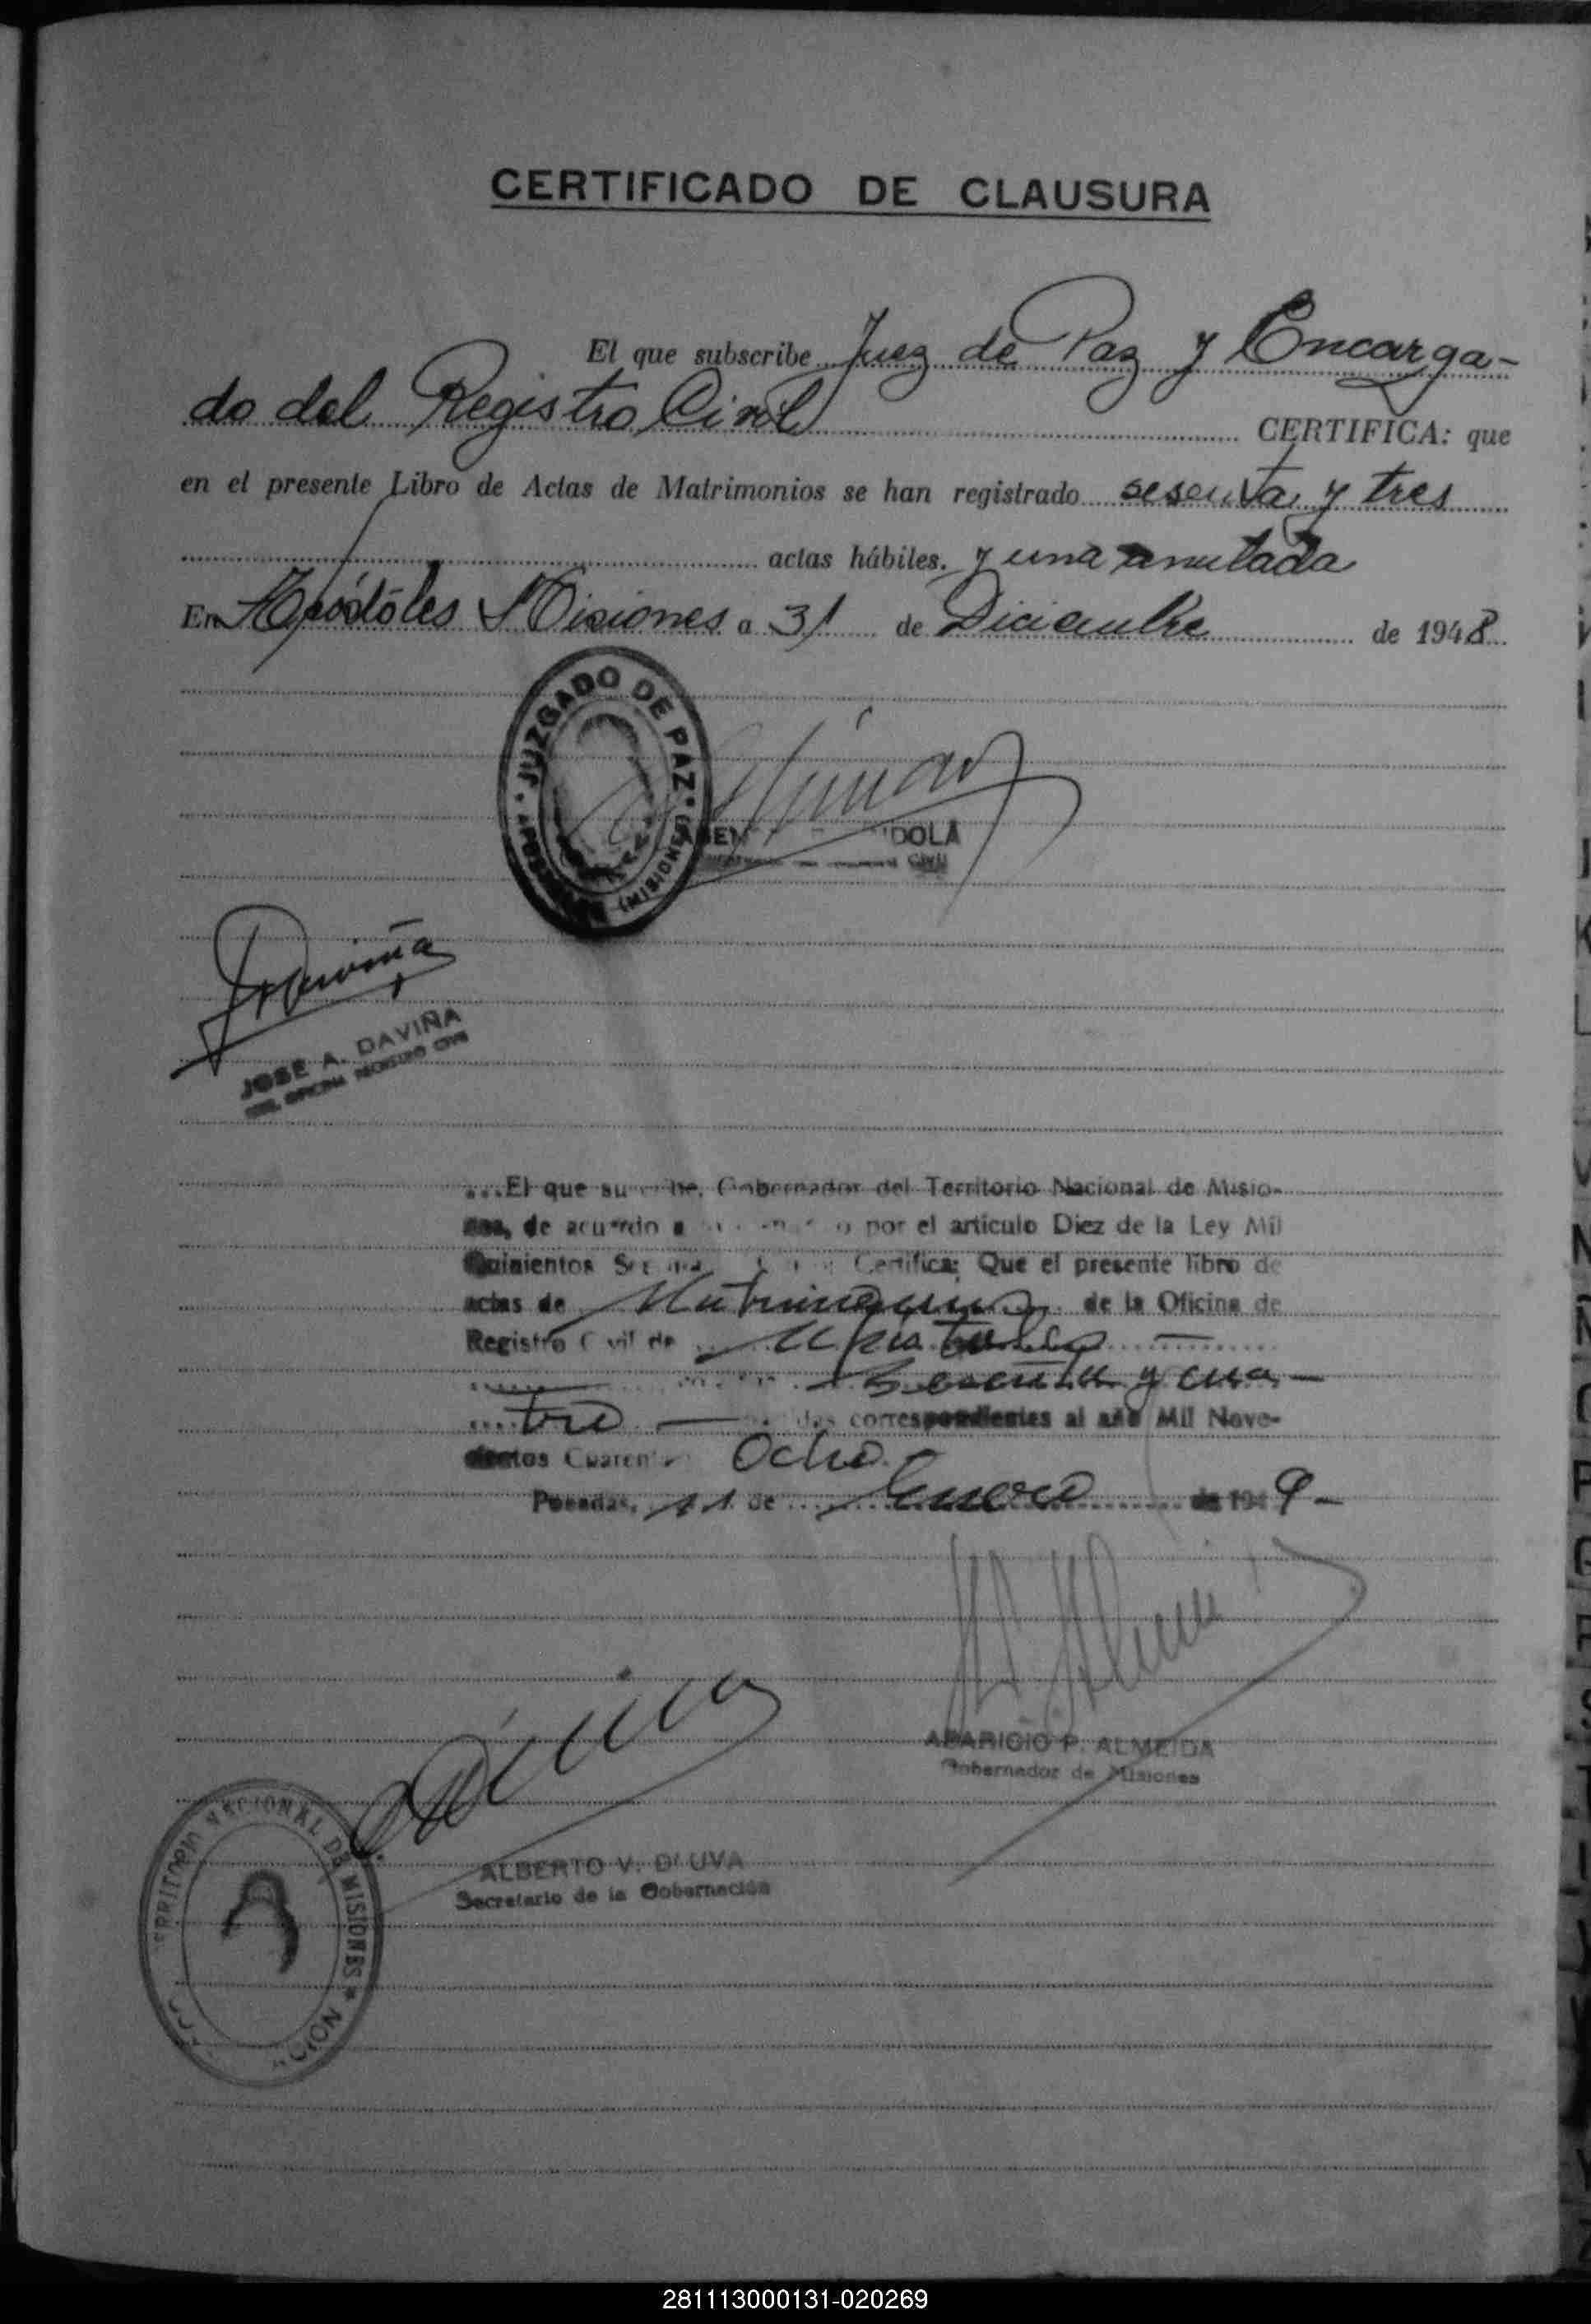 CERTIFICADO DE CLAUSURA
El que subscribe Juez de Paz y Encarga-
do del Registro Civil CERTIFICA: que
en el presente Libro de Actas de Matrimonios se han registrado sesenta y tres
actas hábiles. y una anulada
En Apóstoles Misiones a 31 de Diciembre de 1948
JUZGADO DE PAZ
APOSTOLES (MISIONES)
DOLA
CIVIL
JOSE A. DAVIÑA
OFICINA REGISTRO CIVIL
El que su be, Gobernador del Territorio Nacional de Misio-
nes, de acuerdo a por el artículo Diez de la Ley Mil
Quinientos Certifica: Que el presente libro de
actas de Matrimonios de la Oficina de
Registro Civil de Apóstoles
Sesenta y cua-
tro das correspondientes al año Mil Nove-
cientos Cuarenta Ocho
Posadas, 11 de Enero de 1949-
APARICIO P. ALMEIDA
Gobernador de Misiones
ALBERTO V. D'UVA
Secretario de la Gobernación
TERRITORIO NACIONAL DE MISIONES
281113000131-020269